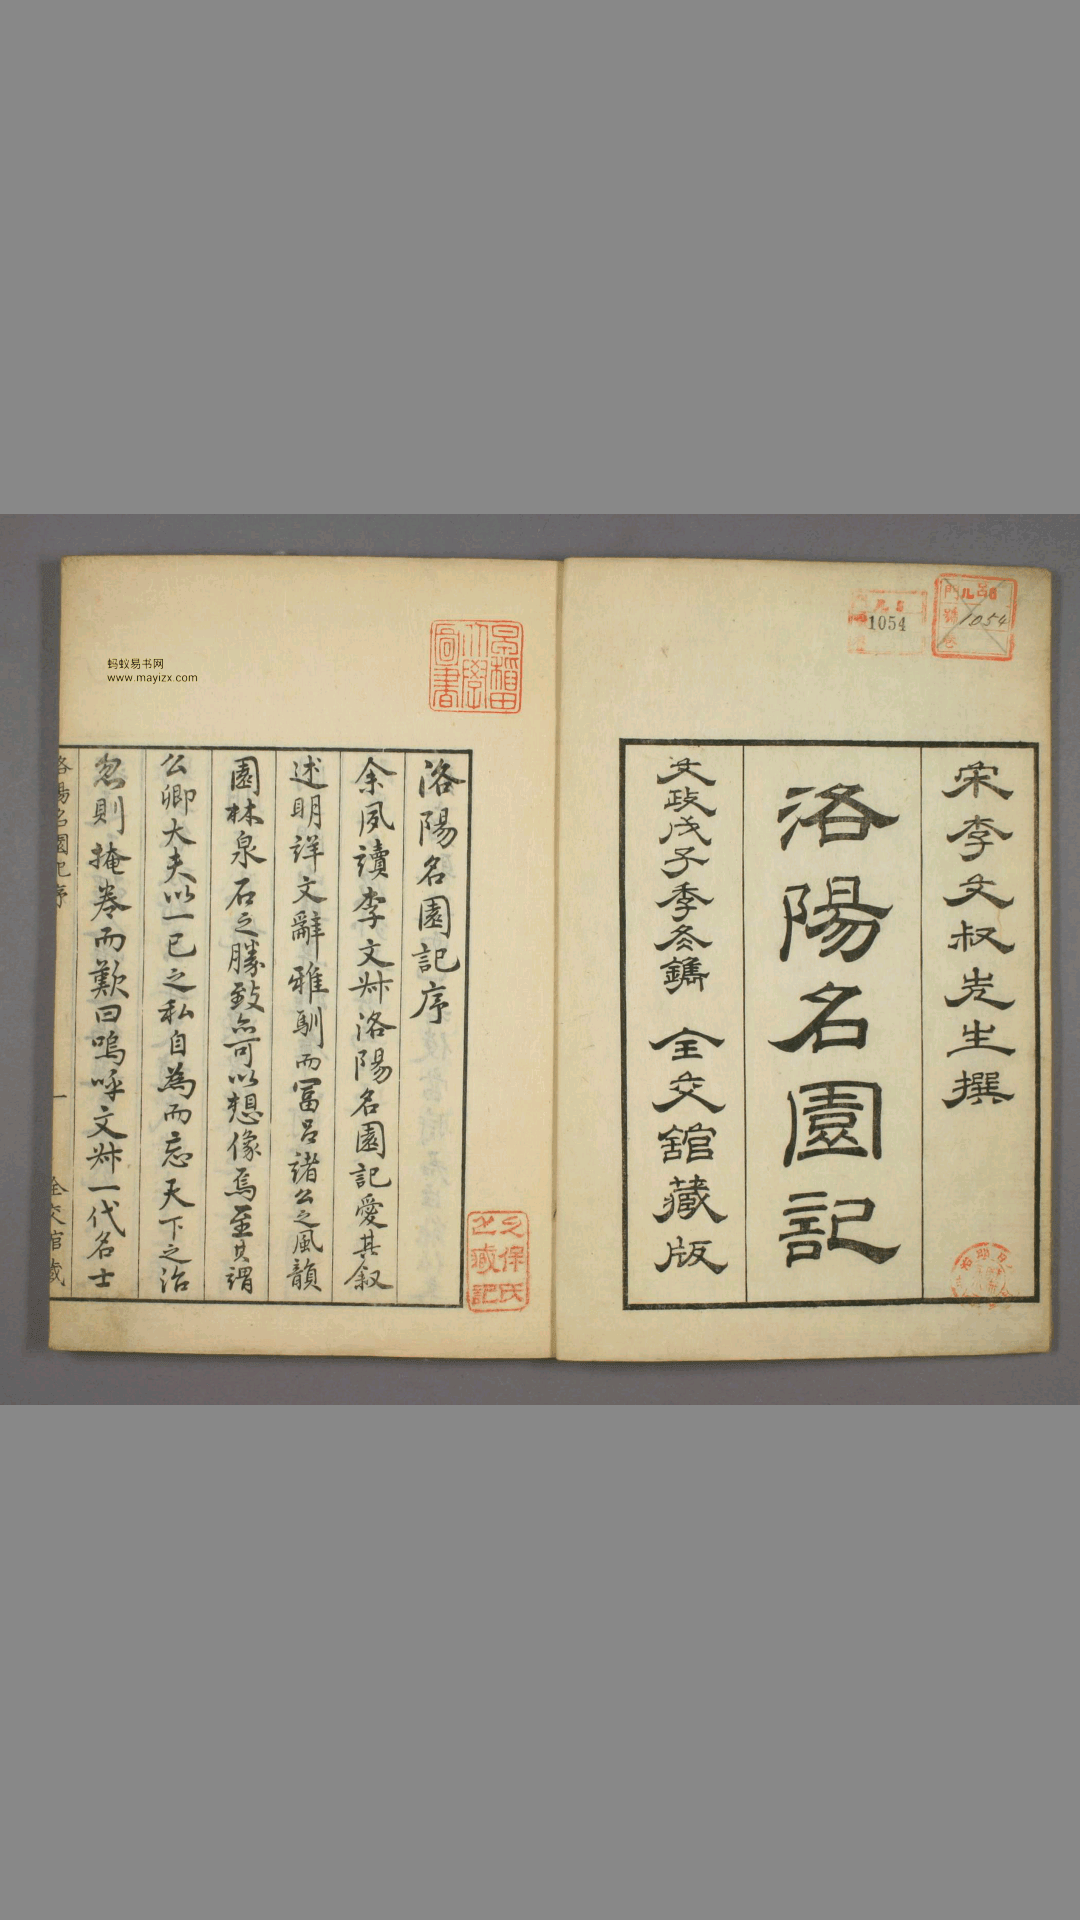 宋李文叔先生撰
洛陽名園記
文政戊子季冬鐫 全交館藏版
1054
1054
洛陽名園記序
余夙讀李文叔洛陽名園記愛其叙
述明詳文辭雅馴而冨呂諸公之風韻
園林泉石之勝致亦可以想像焉至其謂
公卿大夫以一己之私自為而忘天下之治
忽則掩卷而歎曰嗚呼文叔一代名士
洛陽名園記序 一 全交館藏
早稲田大學圖書
久保氏之蔵記
蚂蚁易书网
www.mayizx.com